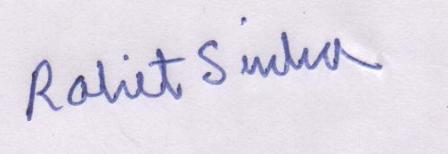 Rohit Sinha